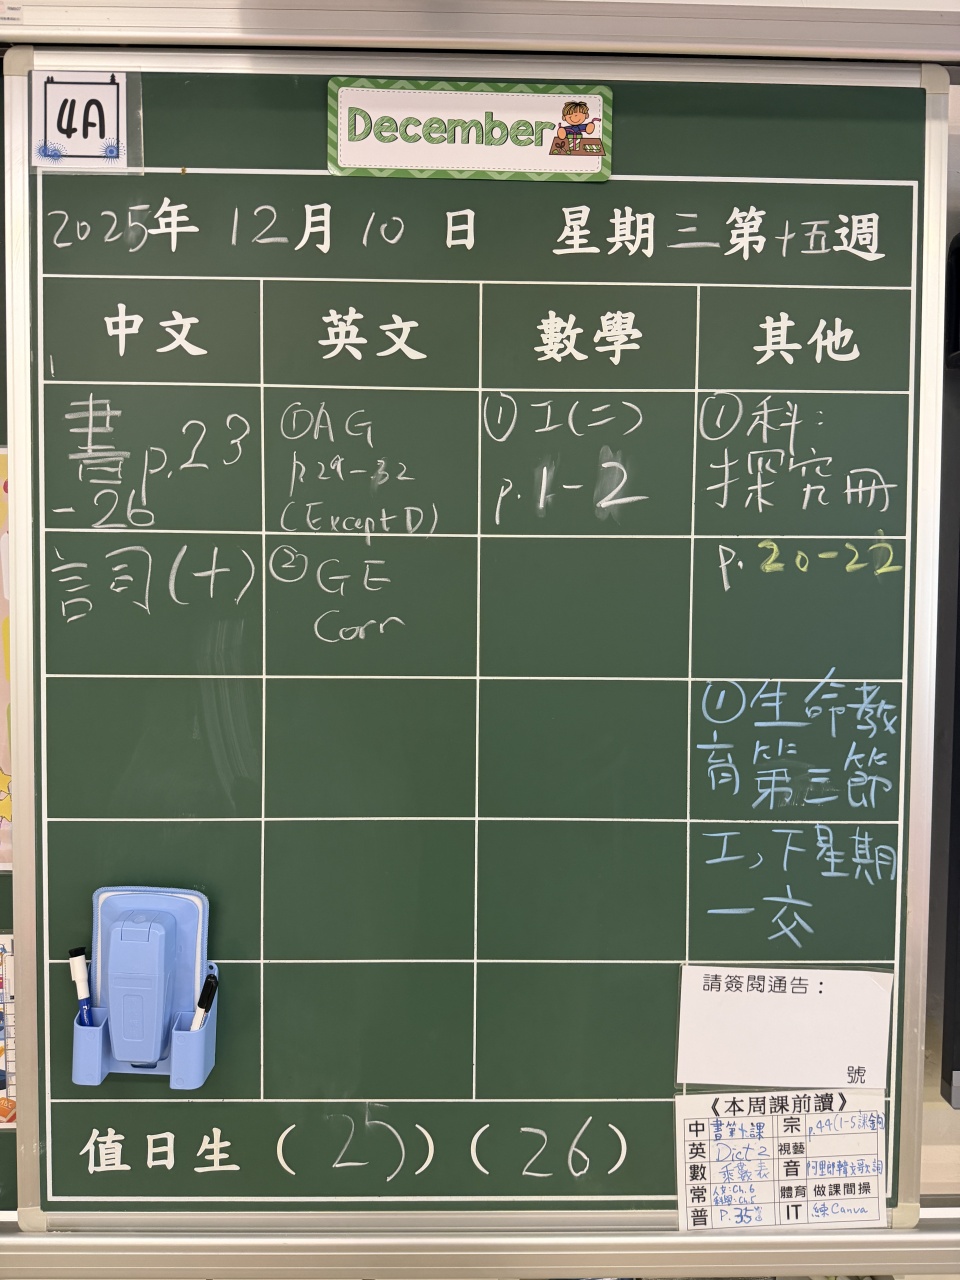 4A
December
2025年 12月 10日 星期三第十五週
中文 英文 數學 其他
書 p.23
-26
①AG
p.29-32
(Except D)
①工(二)
p.1-2
①科:
探究冊
詞(十)
②GE
Corr
p. 20-22
①生命教
育第三節
工,下星期
一交
請簽閱通告:
號
《本周課前讀》
中 書第十課 宗 p.44(1-5課
英 Dict 2 視藝
數 乘數表 音 阿里郎
常 Ch.6
Ch.5 體育 做課間操
普 P.35 IT 練Canva
值日生 (25) (26)